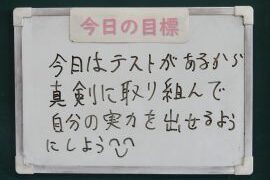 今日の目標
今日はテストがあるから
真剣に取り組んで
自分の実力を出せるよう
にしよう^^